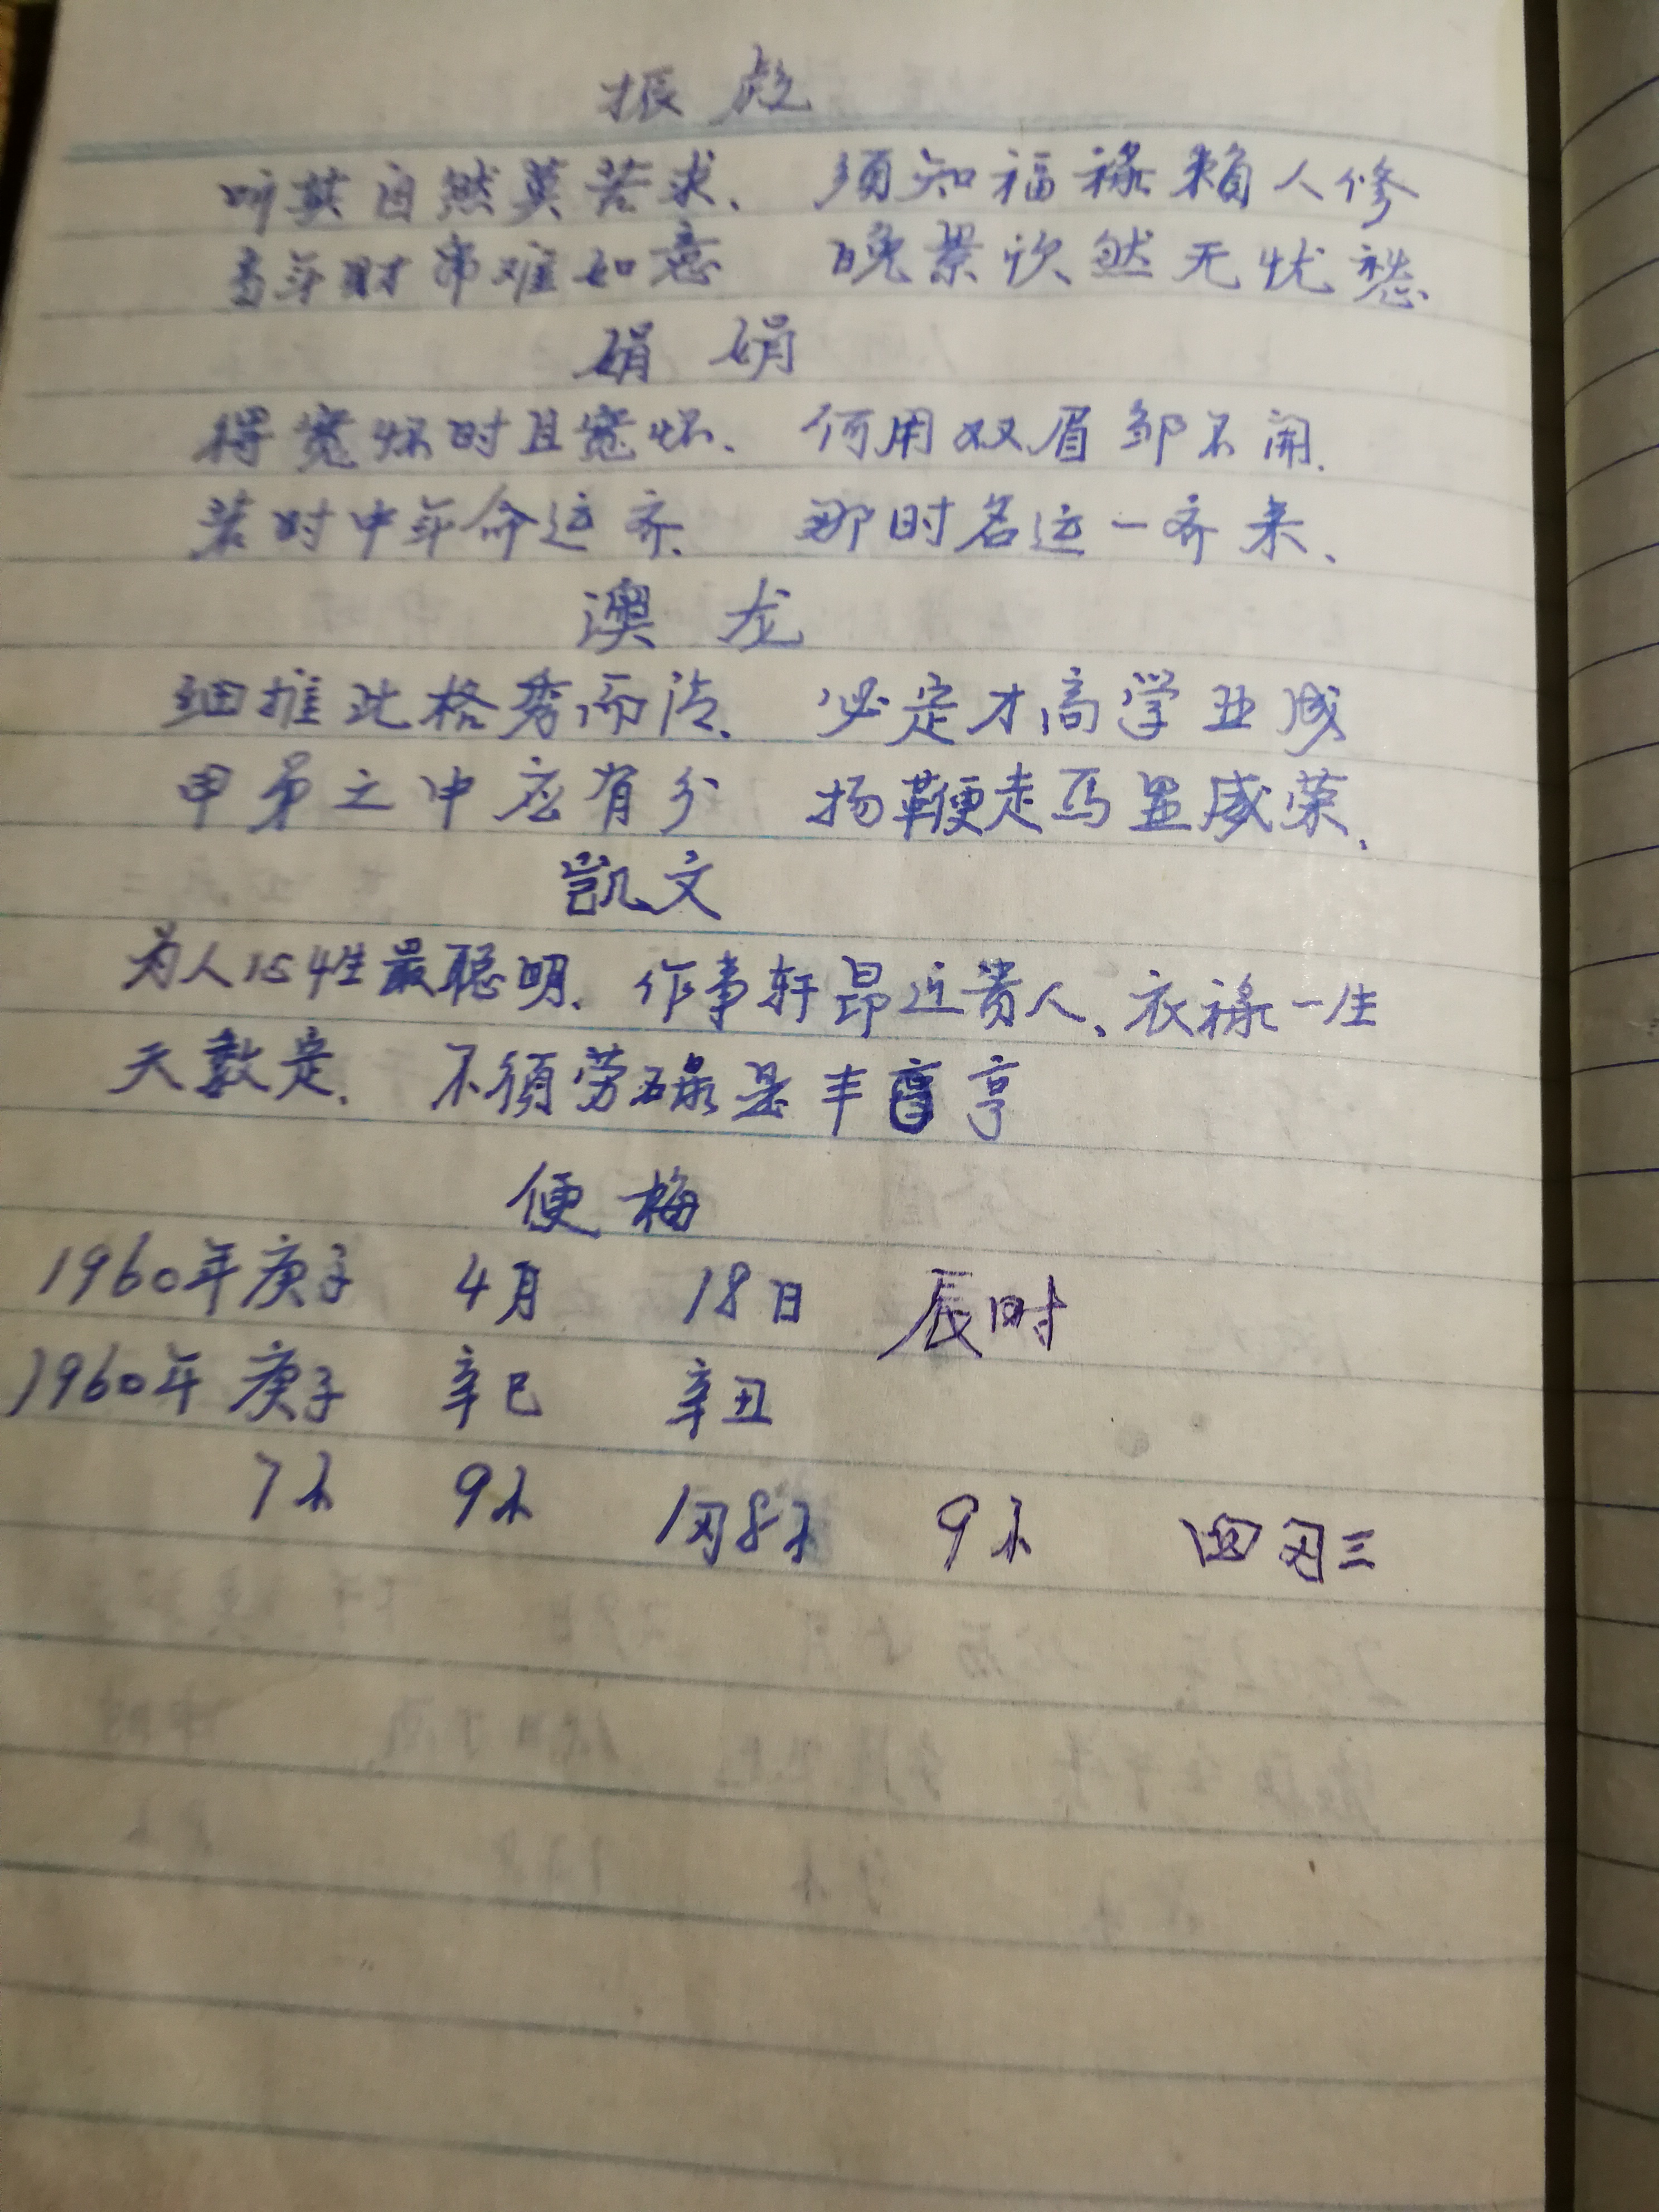 振彪
听其自然莫苦求、 须知福禄赖人修
当年财帛难如意 晚景欣然无忧愁、
娟 娟
得宽怀时且宽怀、 何用双眉邹不开、
若对中年命运齐、 那时名运一齐来、
澳 龙
细推此格秀而清、 必定才高学业成
甲第之中应有分 扬鞭走马显威荣、
凯文
为人心性最聪明、作事轩昂近贵人、衣禄一生
天数定、 不须劳碌是丰亨
便梅
1960年庚子 4月 18日 辰时
1960年 庚子 辛巳 辛丑
7 9 1 8 9 四 三